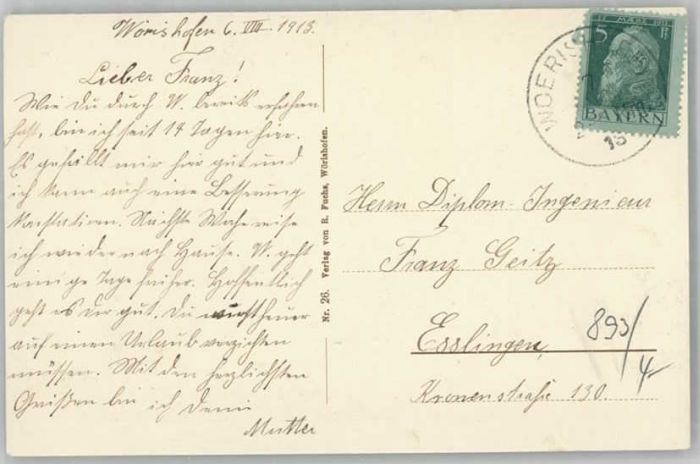 Wörishofen 6. VIII. 1913.
Lieber Franz!
Wie Du durch W. bereits erfahren
hast, bin ich seit 14 Tagen hier.
Es gefällt mir hier gut und
ich kann auch eine Besserung
konstatieren. Nächste Woche reise
ich wieder nach Hause. W. geht
einige Tage früher. Hoffentlich
geht es Dir gut. Du wirst heuer
auf einen Urlaub verzichten
müssen. Mit den herzlichsten
Grüßen bin ich Deine
Mutter
Nr. 26. Verlag von R. Fuchs, Wörishofen.
12 MÄRZ 1911
5 Pf
BAYERN
WOERIS
13
Herrn Diplom-Ingenieur
Franz Geitz
Esslingen,
Kronenstraße 130.
893/4